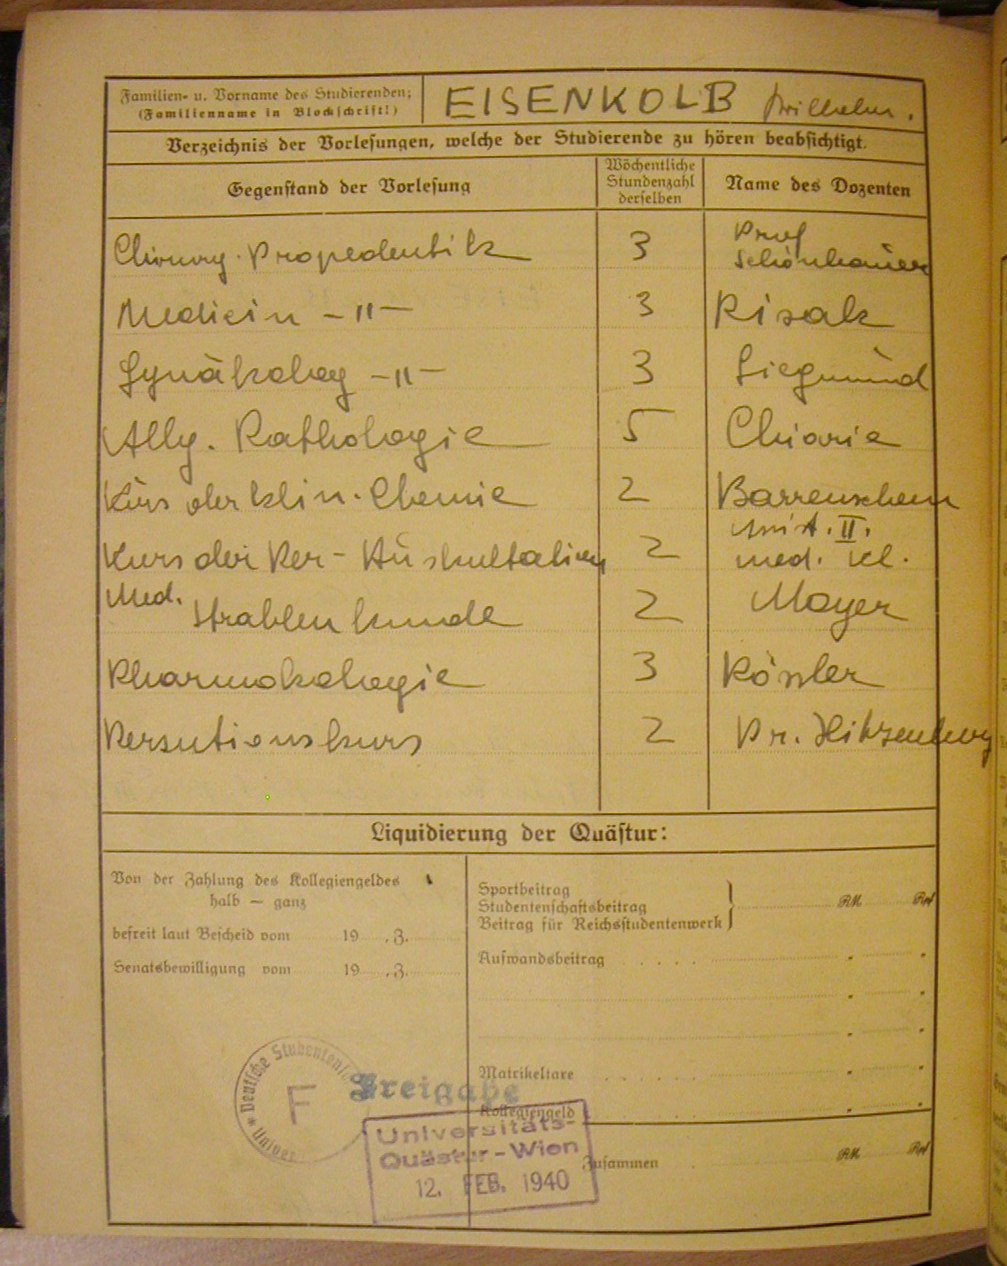 Familien- u. Vorname des Studierenden;
(Familienname in Blockschrift!)
EISENKOLB Wilhelm.
Verzeichnis der Vorlesungen, welche der Studierende zu hören beabsichtigt.
Gegenstand der Vorlesung
Wöchentliche
Stundenzahl
derselben
Name des Dozenten
Chirurg. Propedeutik 3 Prof Schönbauer
Medicin -"- 3 Risak
Gynäkolog -"- 3 Siegmund
Allg. Pathologie 5 Chiari
Kurs der klin. Chemie 2 Barrenscheen
Kurs der Per- Auskultation 2 Assist. II. med. Kl.
Med. Strahlenkunde 2 Mayer
Pharmakologie 3 Rössler
Perkutionskurs 2 Pr. Hitzenberg
Liquidierung der Quästur:
Von der Zahlung des Kollegiengeldes
halb — ganz
befreit laut Bescheid vom 19 .Z.
Senatsbewilligung vom 19 .Z.
Sportbeitrag
Studentenschaftsbeitrag
Beitrag für Reichsstudentenwerk
RM Rpf
Aufwandsbeitrag
Matrikeltaxe
Kollegiengeld
Zusammen RM Rpf
Deutsche Studenten
F
Univer
Freigabe
Universitäts-
Quästur-Wien
12. FEB. 1940